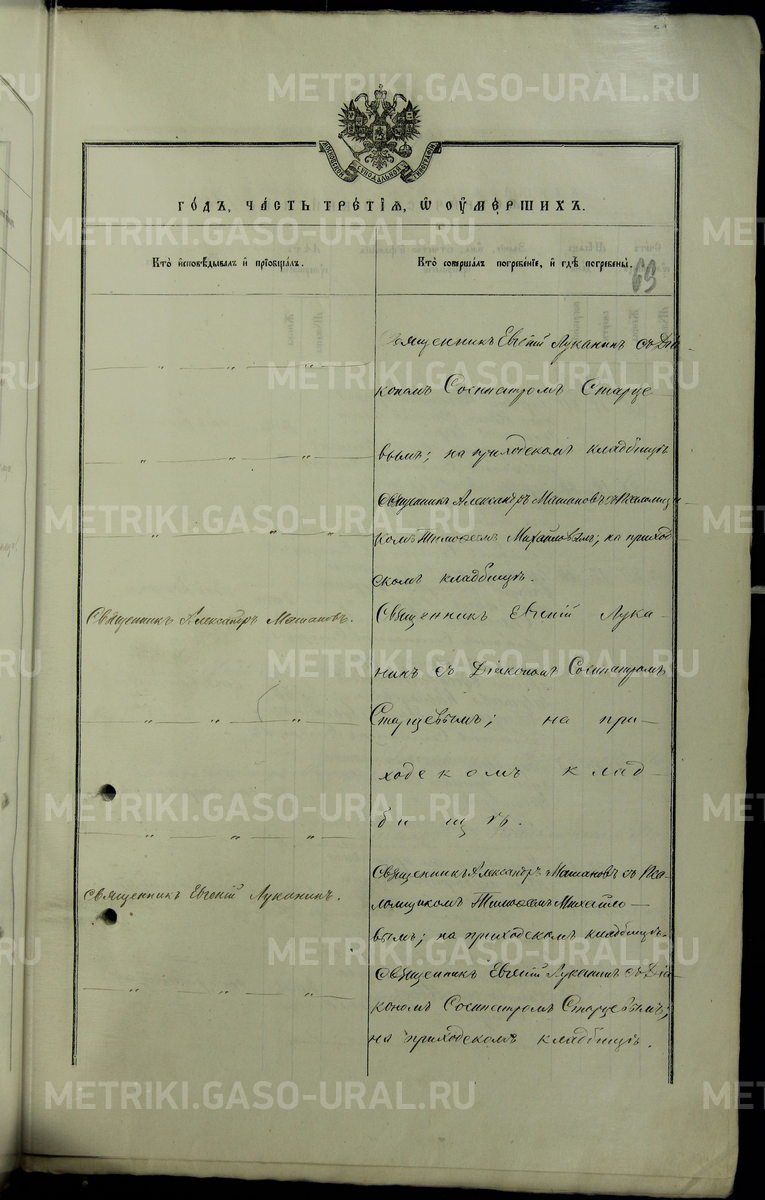 МОСКОВСКОЙ СѴНОДАЛЬНОЙ ТИПОГРАФІИ
ГОДЪ, ЧАСТЬ ТРЕТІЯ, Ѡ ОУМЕРШИХЪ.
Кто исповѣдывалъ и пріобщалъ.
Кто совершалъ погребеніе, и гдѣ погребены.
69
Священникъ Евгеній Луканинъ съ Діа-
кономъ Сосипатромъ Старце
вымъ; на приходскомъ кладбищѣ
Священникъ Александръ Машановъ съ Псаломщи
комъ Тимофеемъ Михайловымъ; на приход
скомъ кладбищѣ.
Священникъ Александръ Машановъ.
Священникъ Евгеній Лука
нинъ съ Діакономъ Сосипатромъ
Старцевымъ; на при-
ходскомъ клад-
бищѣ.
Священникъ Александръ Машановъ съ Пса-
ломщикомъ Тимофеемъ Михайло-
вымъ; на приходскомъ кладбищѣ.
Священникъ Евгеній Луканинъ.
Священникъ Евгеній Луканинъ съ Діа-
кономъ Сосипатромъ Старцевымъ;
на приходскомъ кладбищѣ.
METRIKI.GASO-URAL.RU